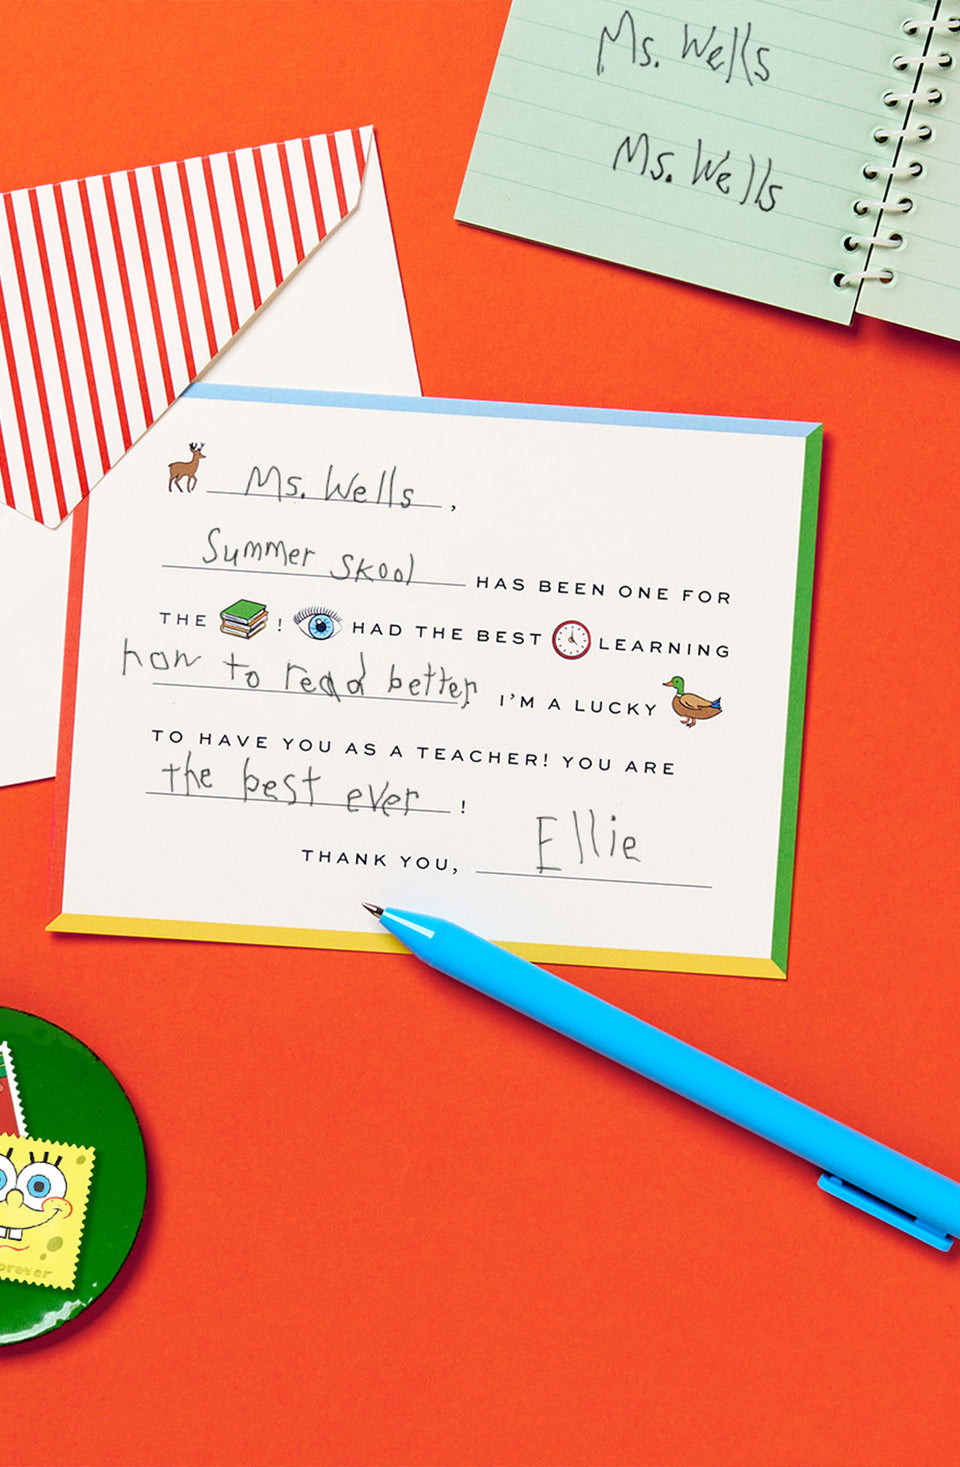 Ms. Wells
Ms. Wells
Ms. Wells,
Summer Skool HAS BEEN ONE FOR
THE ! HAD THE BEST LEARNING
how to read better. I'M A LUCKY
TO HAVE YOU AS A TEACHER! YOU ARE
the best ever !
THANK YOU, Ellie
orever